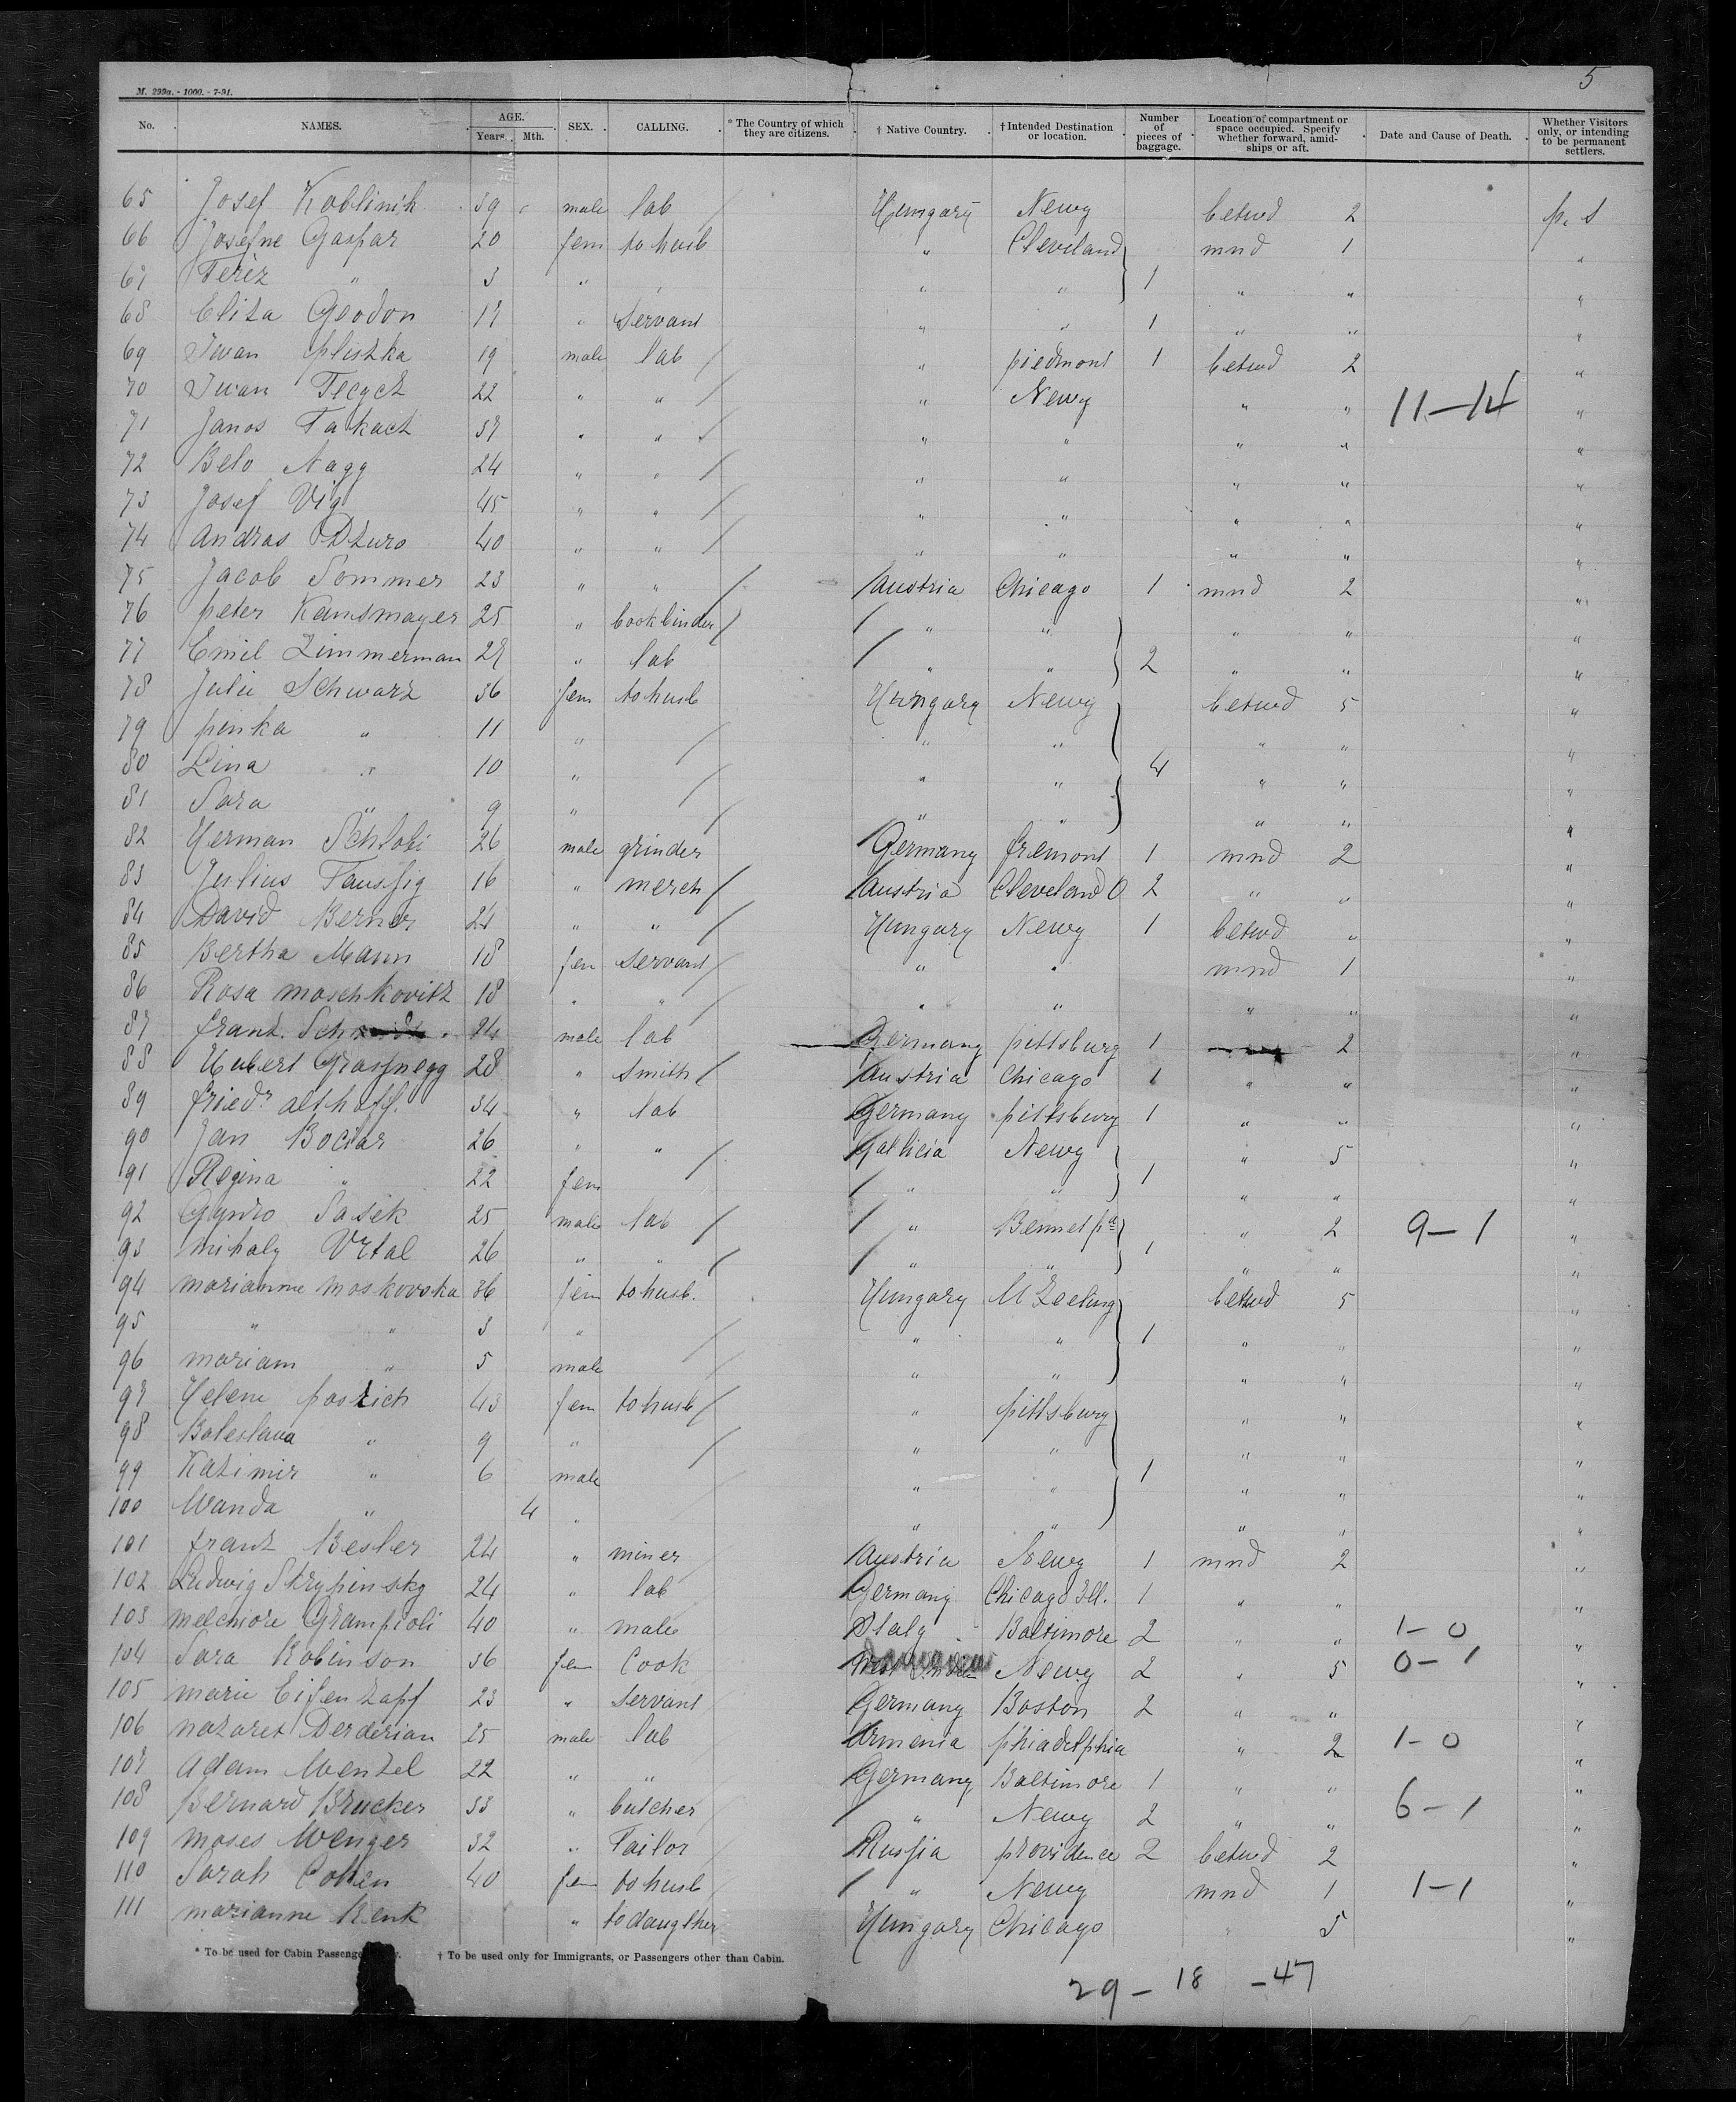 5
M. 299a. - 1000. - 7-91.
No. NAMES. AGE. Years. Mth. SEX. CALLING. * The Country of which they are citizens. † Native Country. † Intended Destination or location. Number of pieces of baggage. Location of compartment or space occupied. Specify whether forward, amidships or aft. Date and Cause of Death. Whether Visitors only, or intending to be permanent settlers.
65 Josef Koblinik 39 male lab / Hungary Newy betwd 2 p. s
66 Josefne Gaspar 20 fem to husb " Cleveland mnd 1 "
67 Terez " 3 " " " " 1 " " "
68 Eliza Geodon 17 " Servant " " 1 " " "
69 Iwan Pliszka 19 male lab / " piedmont 1 betwd 2 "
70 Iwan Tecych 22 " " / " Newy " " 11-14 "
71 Janos Takach 37 " " / " " " " "
72 Belo Nagg 24 " " / " " " " "
73 Josef Vig 45 " " / " " " " "
74 Andras Dzuro 40 " " / " " " " "
75 Jacob Sommer 23 " " / Austria Chicago 1 mnd 2 "
76 peter Kamsmayer 25 " bookbinder / " " " " "
77 Emil Zimmerman 27 " lab " " 2 " " "
78 Julie Schwarz 36 fem to husb Hungary Newy betwd 5 "
79 pinka " 11 " / " " " " "
80 Lina " 10 " / " " 4 " " "
81 Sara " 9 " / " " " " "
82 Herman Schlofi 26 male grinder Germany fremont 1 mnd 2 "
83 Julius Taussig 16 " merch / Austria Cleveland O 2 " " "
84 David Berner 24 " " / Hungary Newy 1 betwd " "
85 Bertha Mann 18 fem Servant / " " mnd 1 "
86 Rosa moschkovitz 18 " " / " " " " "
87 franz. 24 male lab Germany pittsburg 1 2 "
88 Hubert Grassnegg 28 " Smith / Austria Chicago 1 " " "
89 friedr althoff. 34 " lab Germany pittsburg 1 " " "
90 Jan Bociar 26 " " Gallicia Newy " 5 "
91 Regina " 22 fem / " " 1 " " "
92 Sasek 25 male lab / " Bennet pa " 2 9-1 "
93 mihaly Vrtal 26 " " / " " 1 " " "
94 marianne moskovska 36 fem to husb. Hungary betwd 5 "
95 " " 3 " / " " 1 " " "
96 mariam " 5 male / " " " " "
97 Helene pastich 43 fem to husb / " pittsburg " " "
98 Boleslava " 9 " / " " " " "
99 Kazimir " 6 male " " 1 " " "
100 Wanda " 4 " " " " " "
101 franz Besler 24 " miner Austria Newy 1 mnd 2 "
102 Ludwig Strypinsky 24 " lab Germany Chicago Ill. 1 " " "
103 melchiore Grampioli 40 " male Italy Baltimore 2 " " 1-0 "
104 Sara Robinson 36 fem Cook Newy 2 " 5 0-1 "
105 marie Eisenzapf 23 " Servant Germany Boston 2 " " "
106 nazaret Derderian 25 male lab Armenia phiadelphia " 2 1-0 "
107 Adam Wenzel 22 " " Germany Baltimore 1 " " "
108 Bernard Brucker 33 " butcher / " Newy 2 " " 6-1 "
109 moses Wenger 32 " Tailor Russia providence 2 betwd 2 "
110 Sarah Cohen 40 fem to husb / " Newy mnd 1 1-1 "
111 marianne Kenk " to daugther Hungary Chicago " 5 "
* To be used for Cabin † To be used only for Immigrants, or Passengers other than Cabin.
29 - 18 - 47